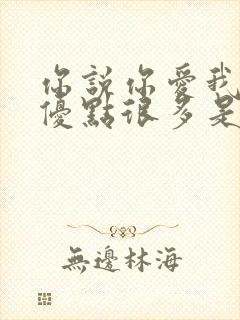 你說你愛我
優點很多是
無邊林海